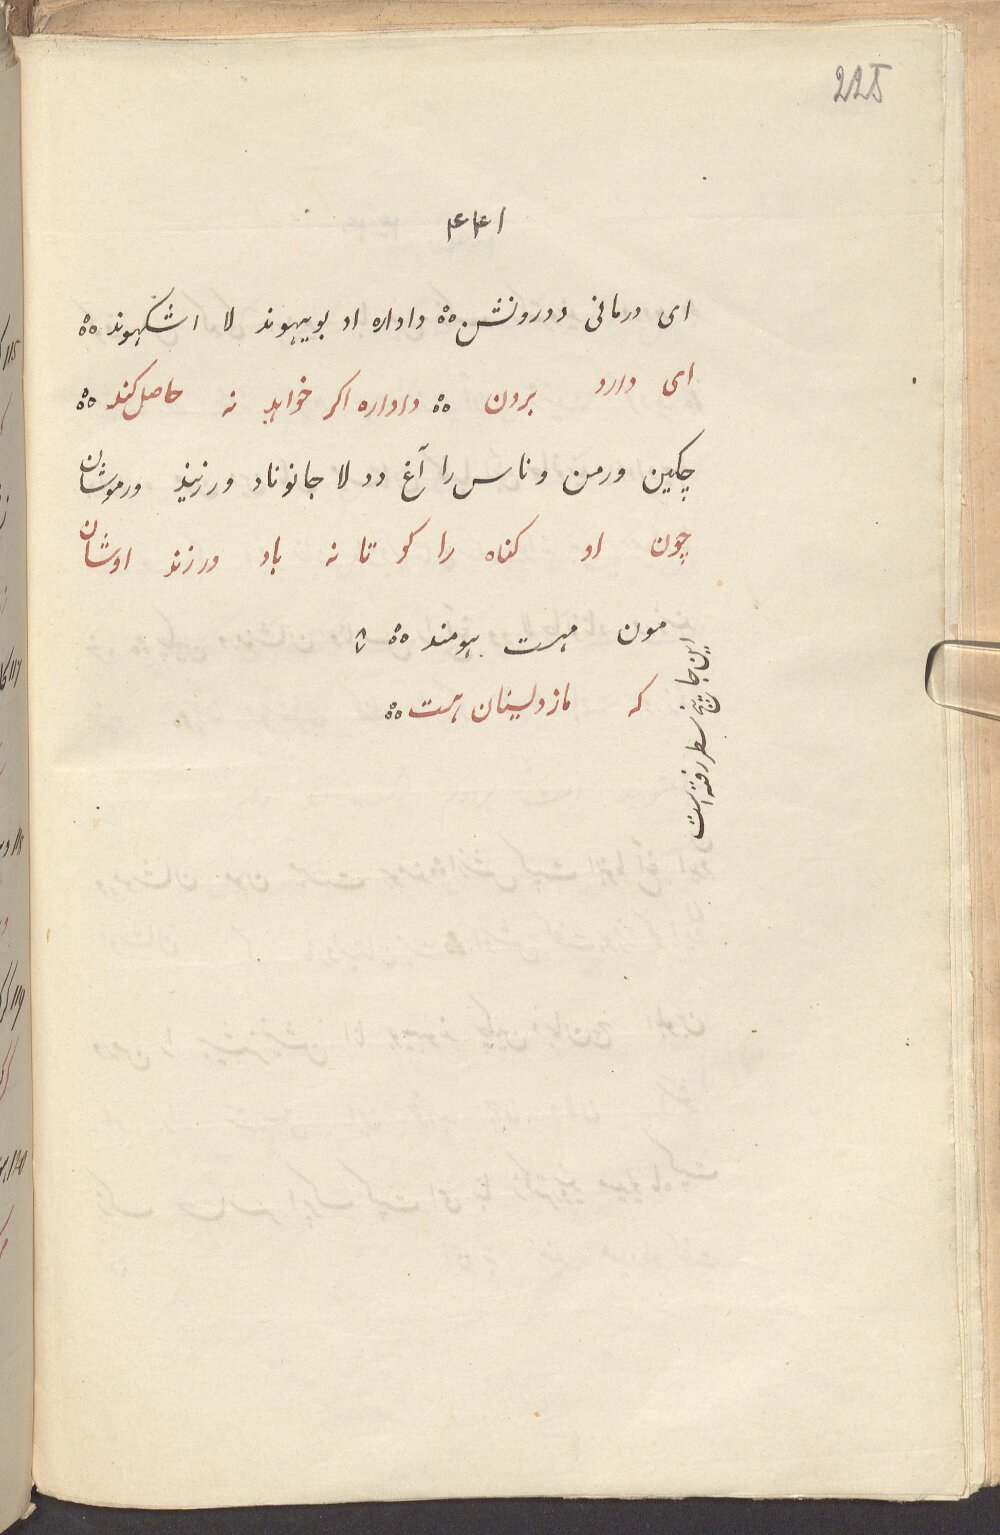 225
۴۴۱
ای درمانی ددرونشن ؞ داداره اد بوییهوند لا اشکهوند ؞
ای دارد برون ؞ داداره اکر خواهد نه حاصل کند ؞
چکین ورمن وناس را آغ دد لا جانوناد ورزیند ورموشان
چون او کناه را کو تا نه باد ورزند اوشان
مون هست هومند ؞
که مازدلیسنان هست ؞
این جا پنج سطر رفته است